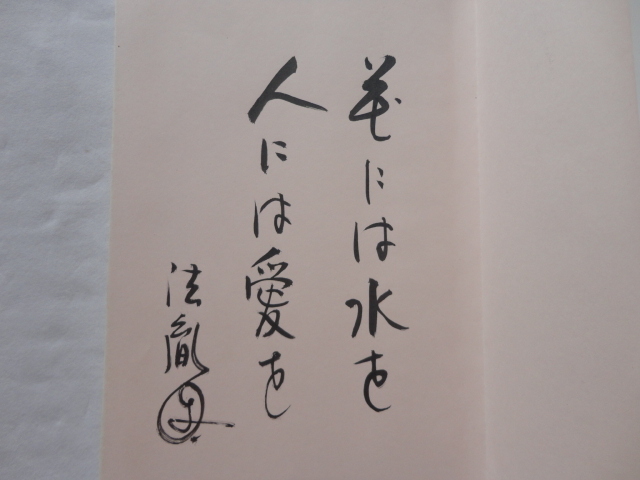 花には水を
人には愛を
法胤